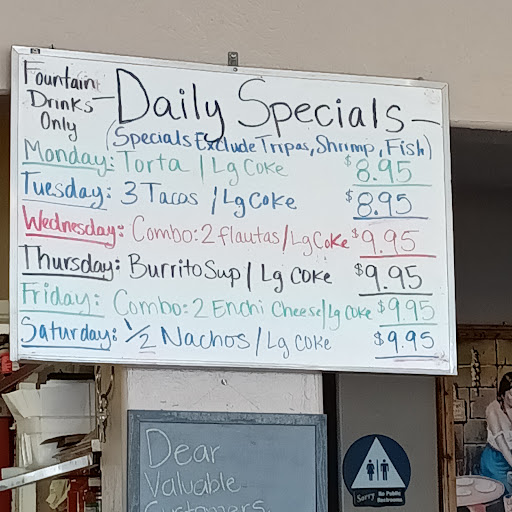 Fountain
Drinks
Only
- Daily Specials -
(Specials Exclude Tripas, Shrimp, Fish)
Monday: Torta / Lg Coke $8.95
Tuesday: 3 Tacos / Lg Coke $8.95
Wednesday: Combo: 2 flautas / Lg Coke $9.95
Thursday: Burrito Sup / Lg Coke $9.95
Friday: Combo: 2 Enchi Cheese / Lg Coke $9.95
Saturday: 1/2 Nachos / Lg Coke $9.95
Dear
Valuable
Customers
Sorry No Public
Restrooms